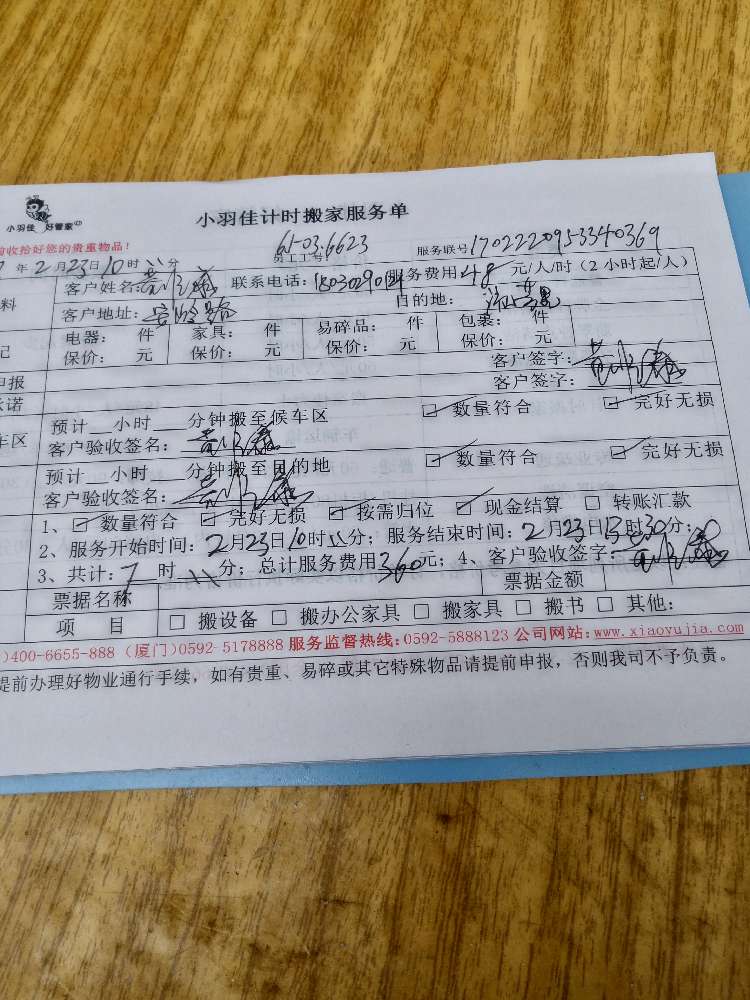 小羽佳 好管家
小羽佳计时搬家服务单
前收拾好您的贵重物品！
员工工号 61-03.6623 服务联号 17022220953340369
年 2 月 23 日 10 时 分
客户姓名： 联系电话： 服务费用 48 元/人/时（2 小时起/人）
料
客户地址： 目的地：
记
电器： 件 家具： 件 易碎品： 件 包裹： 件
保价： 元 保价： 元 保价： 元 保价： 元
客户签字：
申报
客户签字：
承诺
预计 小时 分钟搬至候车区 ☑ 数量符合 ☑ 完好无损
车区
客户验收签名：
预计 小时 分钟搬至目的地 ☑ 数量符合 ☑ 完好无损
客户验收签名：
1、☑ 数量符合 ☑ 完好无损 ☑ 按需归位 ☑ 现金结算 □ 转账汇款
2、服务开始时间：2 月 23 日 10 时 分；服务结束时间：2 月 23 日 13 时 30 分；
3、共计：7 时 分；总计服务费用 360 元；4、客户验收签字：
票据名称 票据金额
项 目 □ 搬设备 □ 搬办公家具 □ 搬家具 □ 搬书 □ 其他：
)400-6655-888 (厦门)0592-5178888 服务监督热线：0592-5888123 公司网站：www.xiaoyujia.com
提前办理好物业通行手续，如有贵重、易碎或其它特殊物品请提前申报，否则我司不予负责。